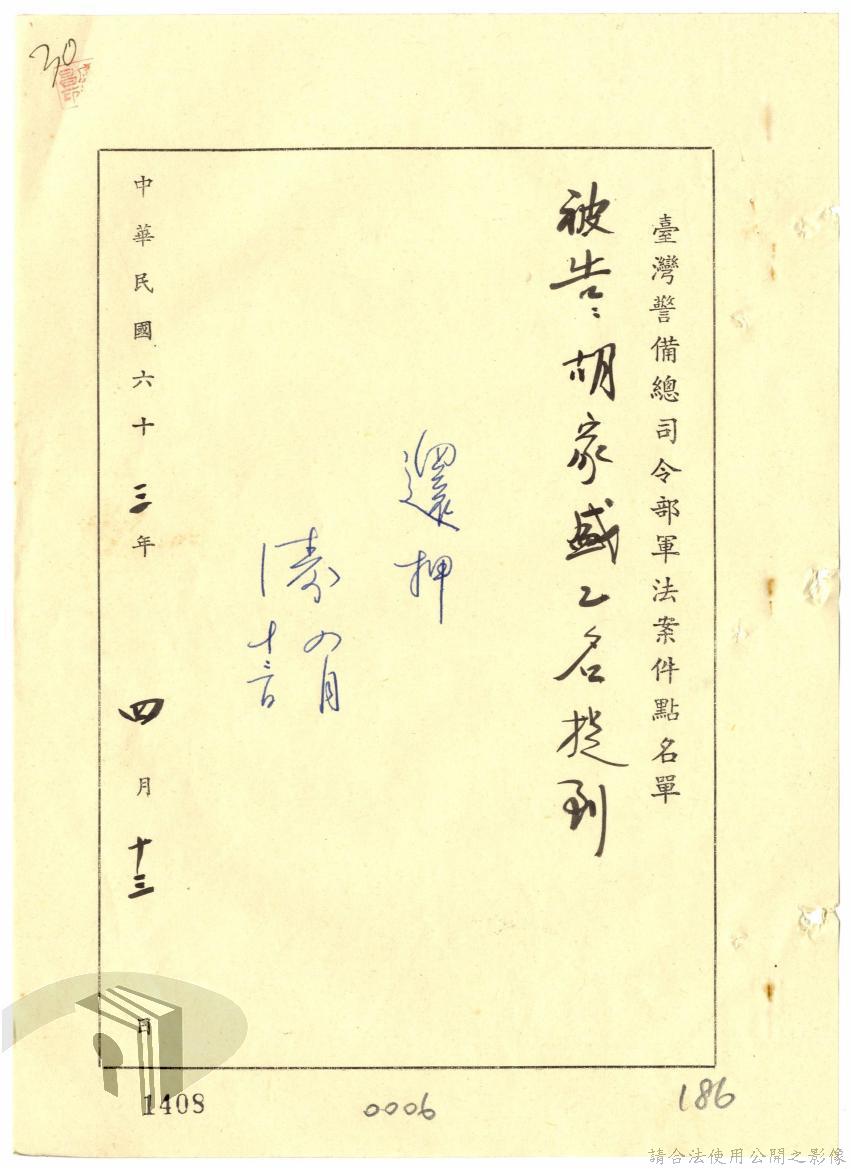 臺灣警備總司令部軍法案件點名單
被告：胡家盛乙名提到
還押
四月
十三日
中華民國六十三年四月十三日
30
1408
0006
186
請合法使用公開之影像